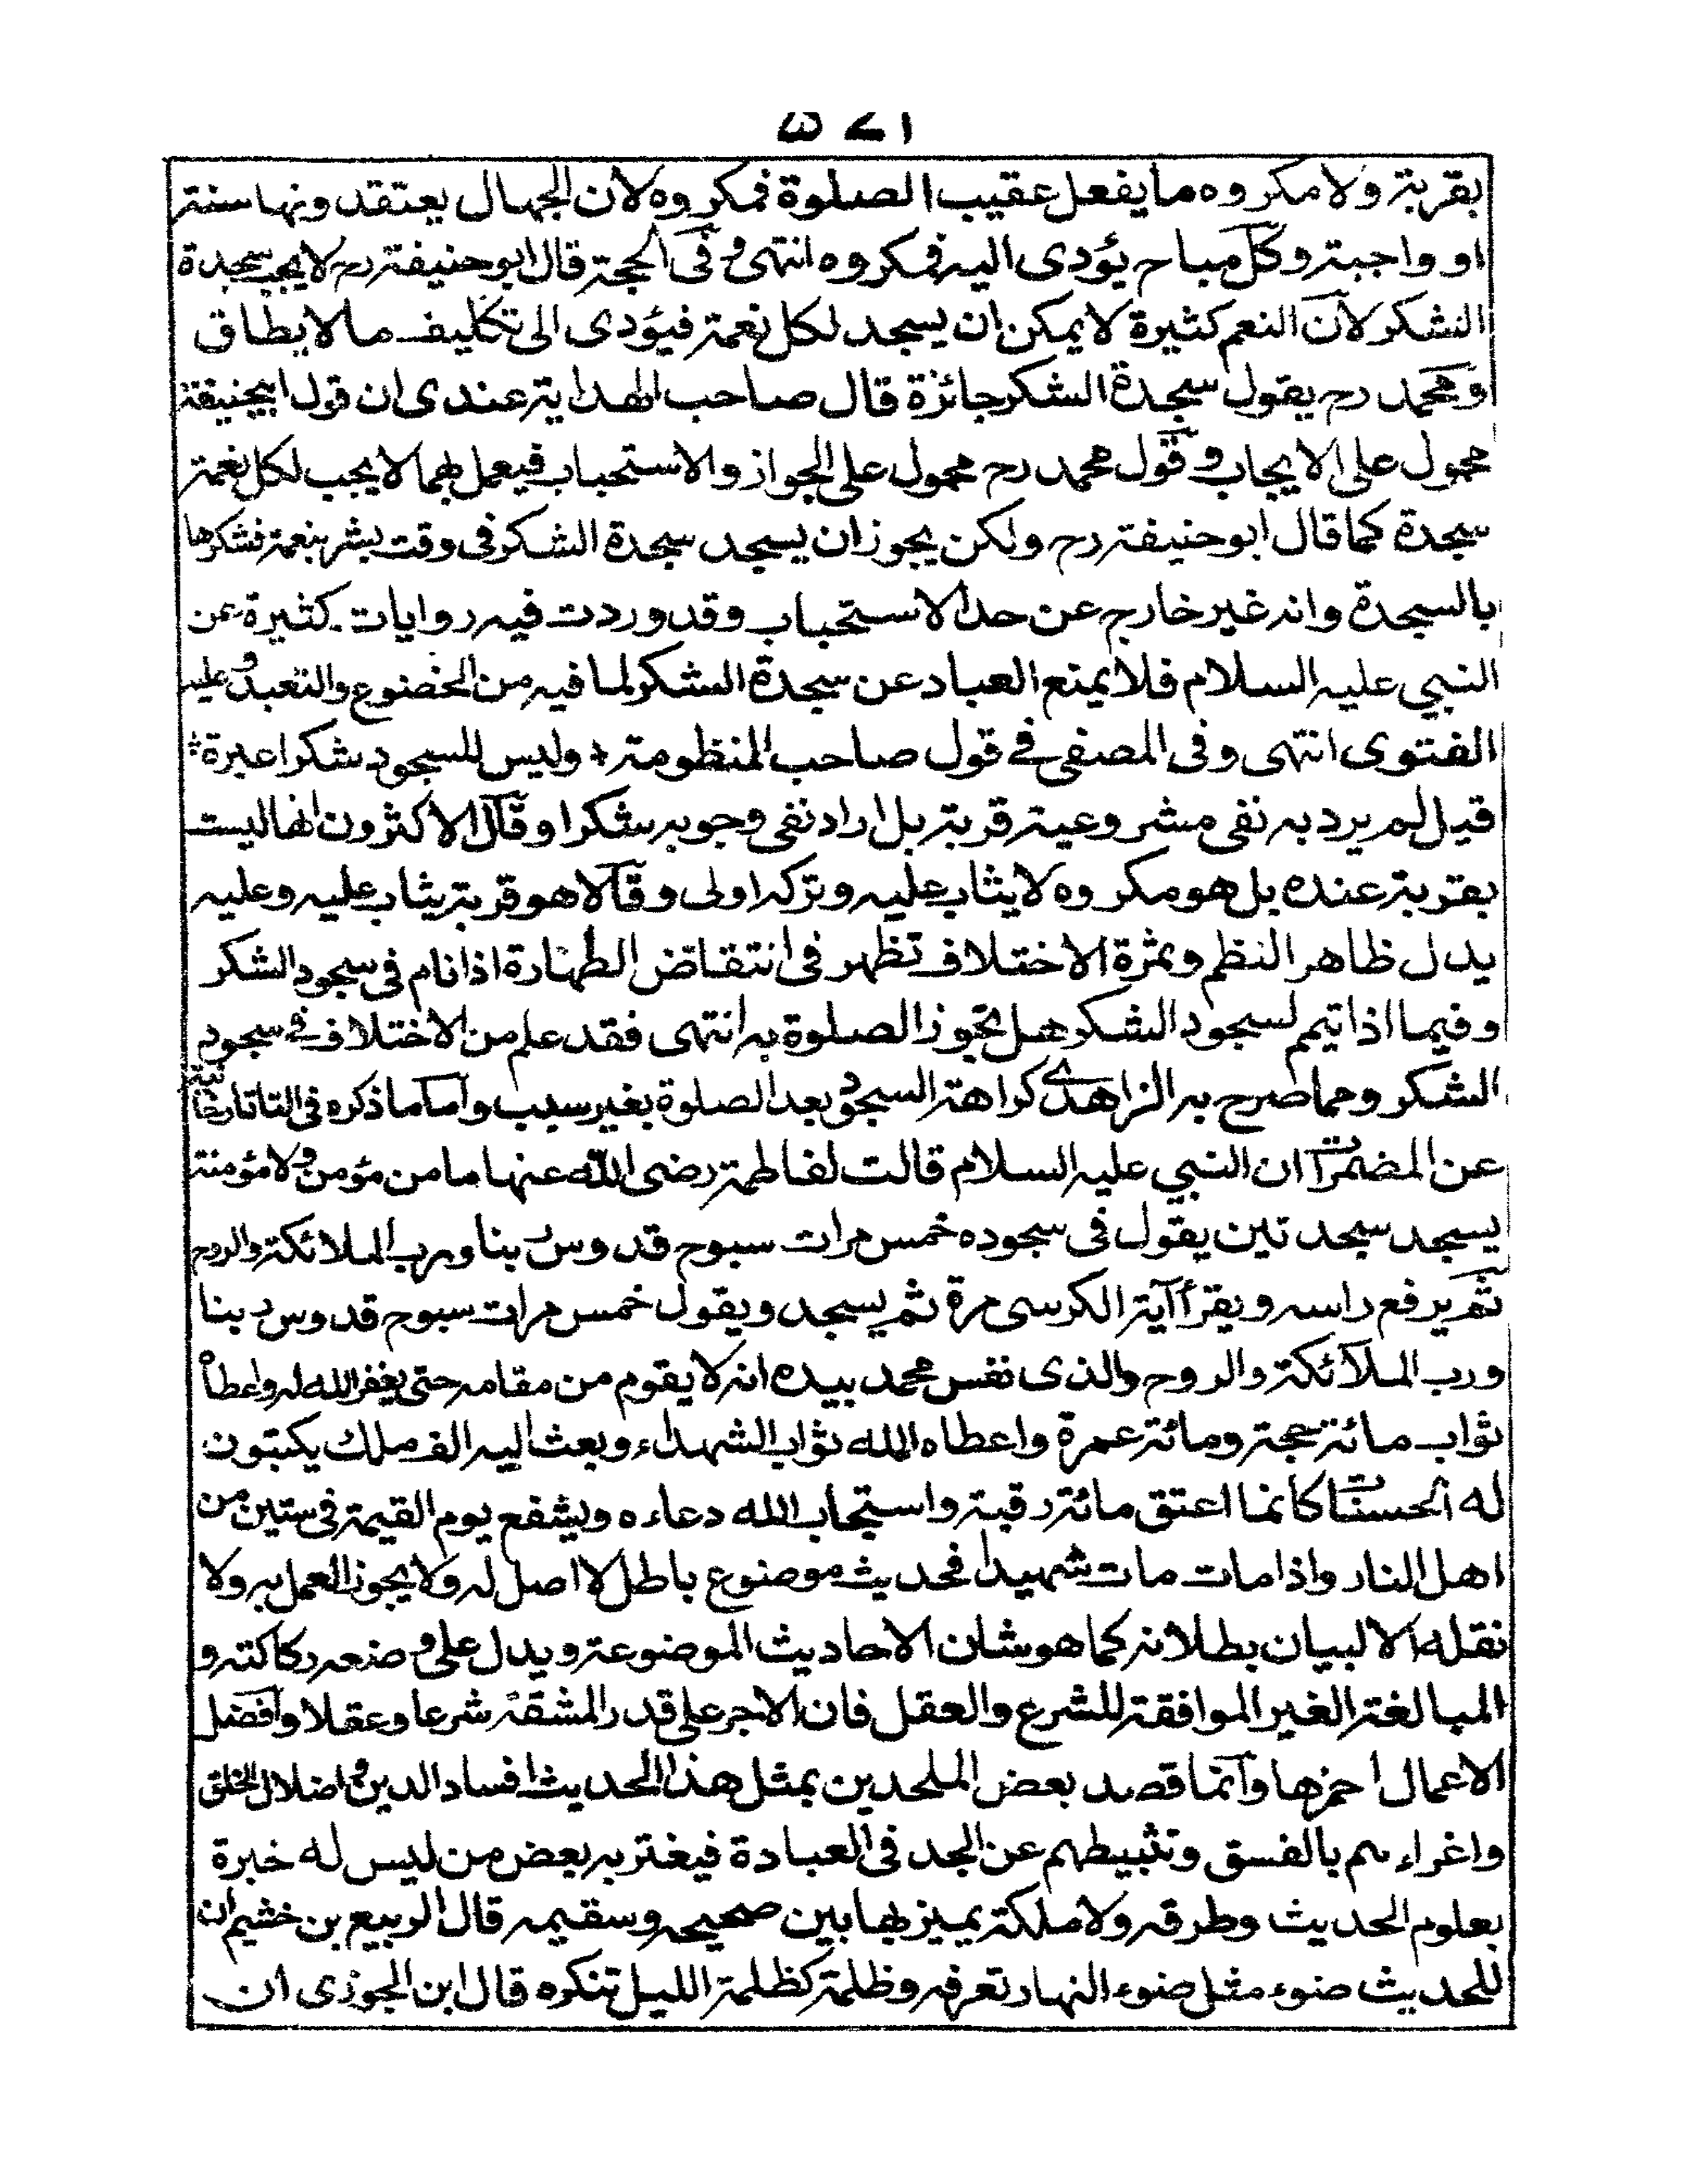 بقربة ولا مكروه ما يفعل عقيب الصلوة فمكروه لان الجهال يعتقدونها سنة
او واجبة وكل مباح يؤدى اليه فمكروه انتهى وفى الحجة قال ابو حنيفة رح لا يجب سجدة
الشكر لان النعم كثيرة لا يمكن ان يسجد لكل نعمة فيؤدى الى تكليف ما لا يطاق
ومحمد رح يقول سجدة الشكر جائزة قال صاحب الهداية عندى ان قول ابيحنيفة
محمول على الايجاب وقول محمد رح محمول على الجواز والاستحباب فيعمل بهما لا يجب لكل نعمة
سجدة كما قال ابو حنيفة رح ولكن يجوز ان يسجد سجدة الشكر فى وقت بشر بنعمة فشكرها
بالسجدة وانه غير خارج عن حد الاستحباب وقد وردت فيه روايات كثيرة عن
النبي عليه السلام فلا يمنع العباد عن سجدة الشكر لما فيه من الخضوع والتعبد وعليه
الفتوى انتهى وفى المصفى فے قول صاحب المنظومة + وليس للسجود شكرا عبرة
قيل لم يرد به نفى مشروعية قربة بل اراد نفى وجوبه شكرا وقال الاكثرون انها ليست
بقربة عنده بل هو مكروه لا يثاب عليه وتركه اولى وقالا هو قربة يثاب عليه وعليه
يدل ظاهر النظم وثمرة الاختلاف تظهر فى انتقاض الطهارة اذا نام فى سجود الشكر
وفيما اذا تيمم لسجود الشكر هل تجوز الصلوة به انتهى فقد علم من الاختلاف فے سجود
الشكر ومما صرح به الزاهدى كراهة السجود بعد الصلوة بغير سبب واما ما ذكره فى التاتارخانية
عن المضمرات ان النبي عليه السلام قالت لفاطمة رضى الله عنها ما من مؤمن ولا مؤمنة
يسجد سجدتين يقول فى سجوده خمس مرات سبوح قدوس ربنا ورب الملائكة والروح
ثم يرفع راسه ويقرأ آية الكرسى مرة ثم يسجد ويقول خمس مرات سبوح قدوس ربنا
ورب الملآئكة والروح والذى نفس محمد بيده انه لا يقوم من مقامه حتى يغفر الله له واعطاه
ثواب مائة حجة ومائة عمرة واعطاه الله ثواب الشهداء وبعث اليه الف ملك يكتبون
له الحسنات كانما اعتق مائة رقبة واستجاب الله دعاءه ويشفع يوم القيمة فى ستين من
اهل النار واذا مات مات شهيدا فحديث موضوع باطل لا اصل له ولا يجوز العمل به ولا
نقله الا لبيان بطلانه كما هو شان الاحاديث الموضوعة ويدل على وضعه ركاكته و
المبالغة الغير الموافقة للشرع والعقل فان الاجر على قدر المشقة شرعا وعقلا وافضل
الاعمال احمزها وانما قصد بعض الملحدين بمثل هذا الحديث افساد الدين واضلال الخلق
واغراءهم بالفسق وتثبيطهم عن الجد فى العبادة فيغتر به بعض من ليس له خبرة
بعلوم الحديث وطرقه ولا ملكة يميز بها بين صحيحه وسقيمه قال الربيع بن خشيم ان
للحديث ضوء مثل ضوء النهار تعرفه وظلمة كظلمة الليل تنكره قال ابن الجوزى ان